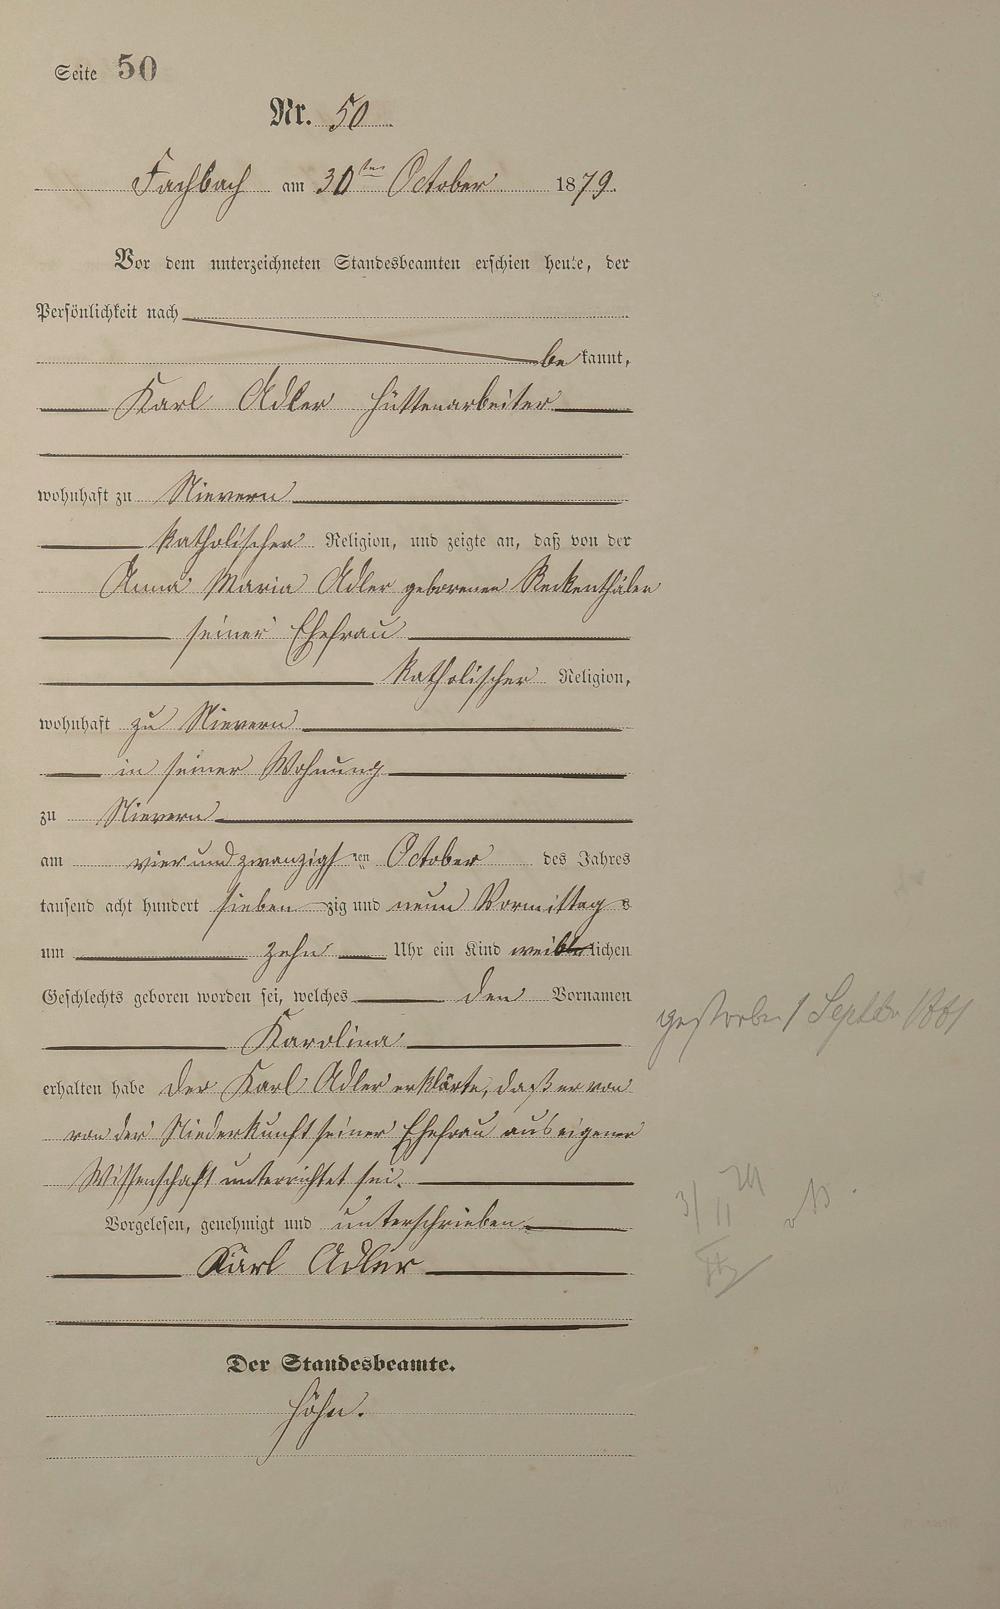 Seite 50
Nr. 50
Fachbach am 30ten October 1879.
Vor dem unterzeichneten Standesbeamten erschien heute, der
Persönlichkeit nach
be kannt,
Karl Adler Hüttenarbeiter
wohnhaft zu Nievern
katholischer Religion, und zeigte an, daß von der
Anna Maria Adler geborenen Reckenthäler
seiner Ehefrau
katholischer Religion,
wohnhaft zu Nievern
in seiner Wohnung
zu Nievern
am vier und zwanzigsten October des Jahres
tausend acht hundert sieben zig und neun Vormittags
um zehn Uhr ein Kind weiblichen
Geschlechts geboren worden sei, welches den Vornamen
Karolina
gestorben 1 September 1881
erhalten habe Der Karl Adler erklärte, daß er von
von der Niederkunft seiner Ehefrau aus eigener
Wissenschaft unterrichtet sei.
Vorgelesen, genehmigt und unterschrieben
Karl Adler
Der Standesbeamte.
Höhn.